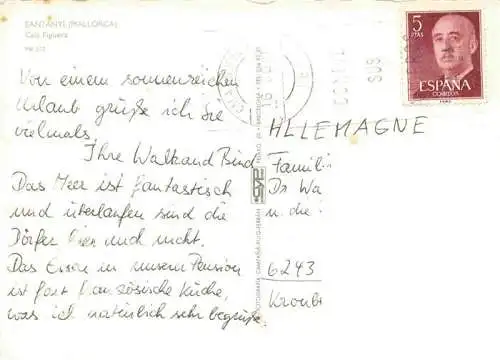 SANTANYI (MALLORCA)
Cala Figuera
Von einem sonnenreichen
Urlaub grüße ich Sie
vielmals,
Ihre Waltraud Bind
Das Meer ist fantastisch
und überlaufen sind die
Dörfer hier auch nicht.
Das Essen in unserer Pension
ist fast französische Küche,
was ich natürlich sehr begrüße.
5
PTAS
ESPAÑA
CORREOS
ALLEMAGNE
Familie
Dr. Wa
u. die
6243
Kronb